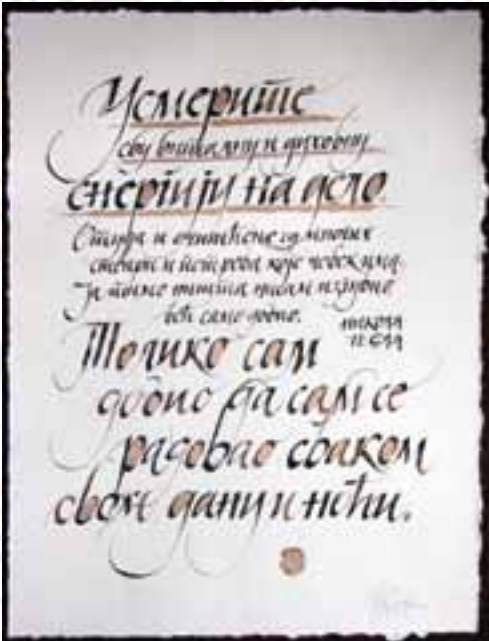 Усмерите
сву виталну и духовну
енергију на дело.
Ствара и очишћене од многих
страсти и потреба које човек има.
Ја тиме ништа нисам изгубио
већ само добио.
НИКОЛА
ТЕСЛА
Толико сам
добио да сам се
радовао сваком
свом дану и ноћи.